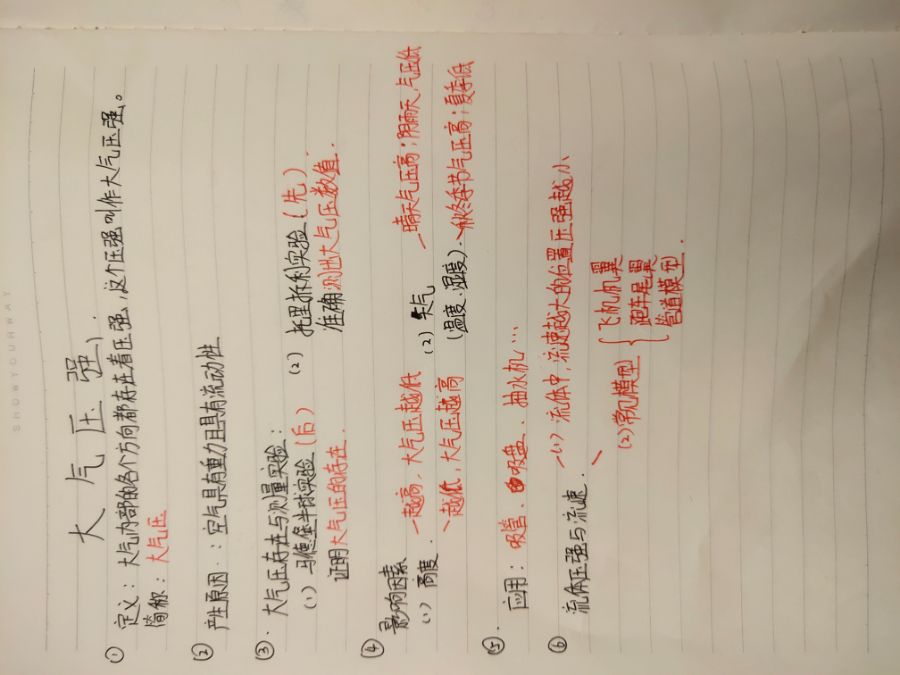 SHOWYOURWAY
大气压强
① 定义：大气内部的各个方向都存在着压强，这个压强叫作大气压强。
简称：大气压
② 产生原因：空气具有重力且具有流动性
③. 大气压存在与测量实验：
(1) 马德堡半球实验(后) (2) 托里拆利实验(先)
证明大气压的存在. 准确测出大气压数值.
④ 影响因素
(1) 高度. 一越高，大气压越低 (2) 天气 一晴天气压高；阴雨天，气压低
越低，大气压越高 (温度.湿度). 秋冬季节气压高；夏季低
⑤. 应用：吸管、吸盘、抽水机…
⑥ 流体压强与流速. 一(1) 流体中，流速越大的位置压强越小
(2) 常见模型 { 飞机机翼
跑车尾翼
管道模型.